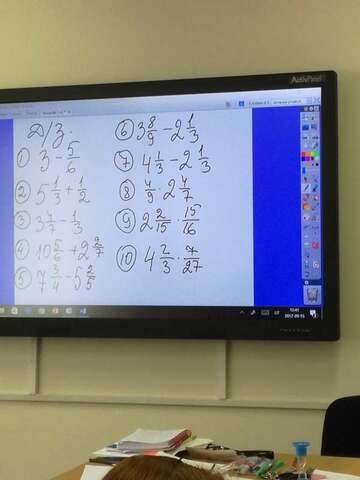 ActivPanel
Д/З.
① 3 - 5/6
② 5 1/3 + 1/2
③ 3 4/7 - 1/3
④ 10 5/6 + 2 2/7
⑤ 7 3/4 - 5 2/5
⑥ 3 8/9 - 2 1/3
⑦ 4 1/3 - 2 1/3
⑧ 4/9 · 2 4/7
⑨ 2 2/15 · 15/16
⑩ 4 2/3 · 7/27
12:41
2017-09-15